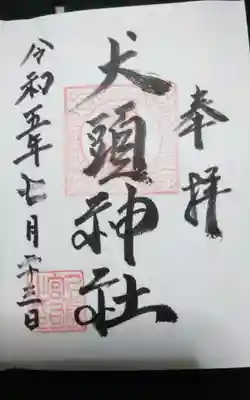 奉拝
犬頭神社
令和五年七月十三日